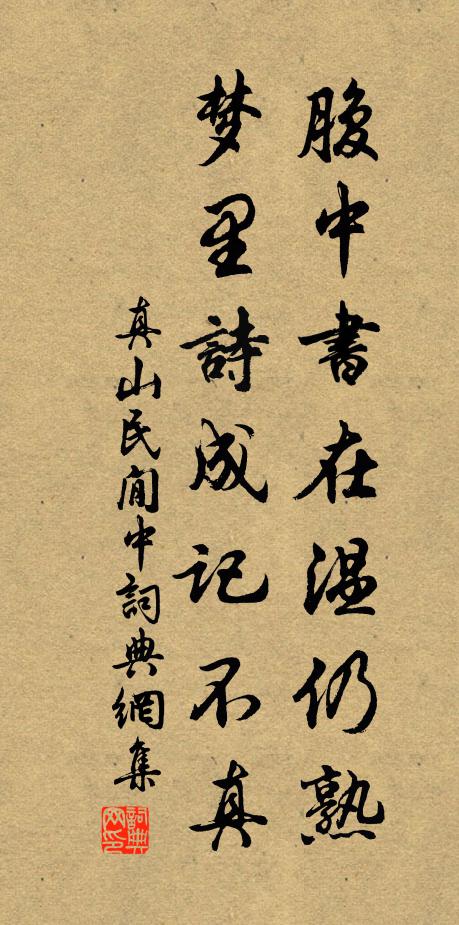 腹中書在温仍熟
梦里詩成記不真
真山民閒中詞典網集
詞典网印